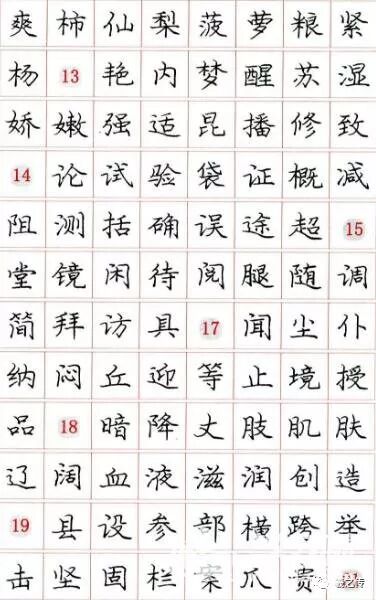 爽柿仙梨菠萝粮紧
杨13艳内梦醒苏湿
娇嫩强适昆播修致
14论试验袋证概减
阻测括确误途超15
堂镜闲待阅腿随调
简拜访具17闻尘仆
纳闷丘迎等止境授
品18暗降丈肢肌肤
辽阔血液滋润创造
19县设参部横跨举
击坚固栏案爪贵